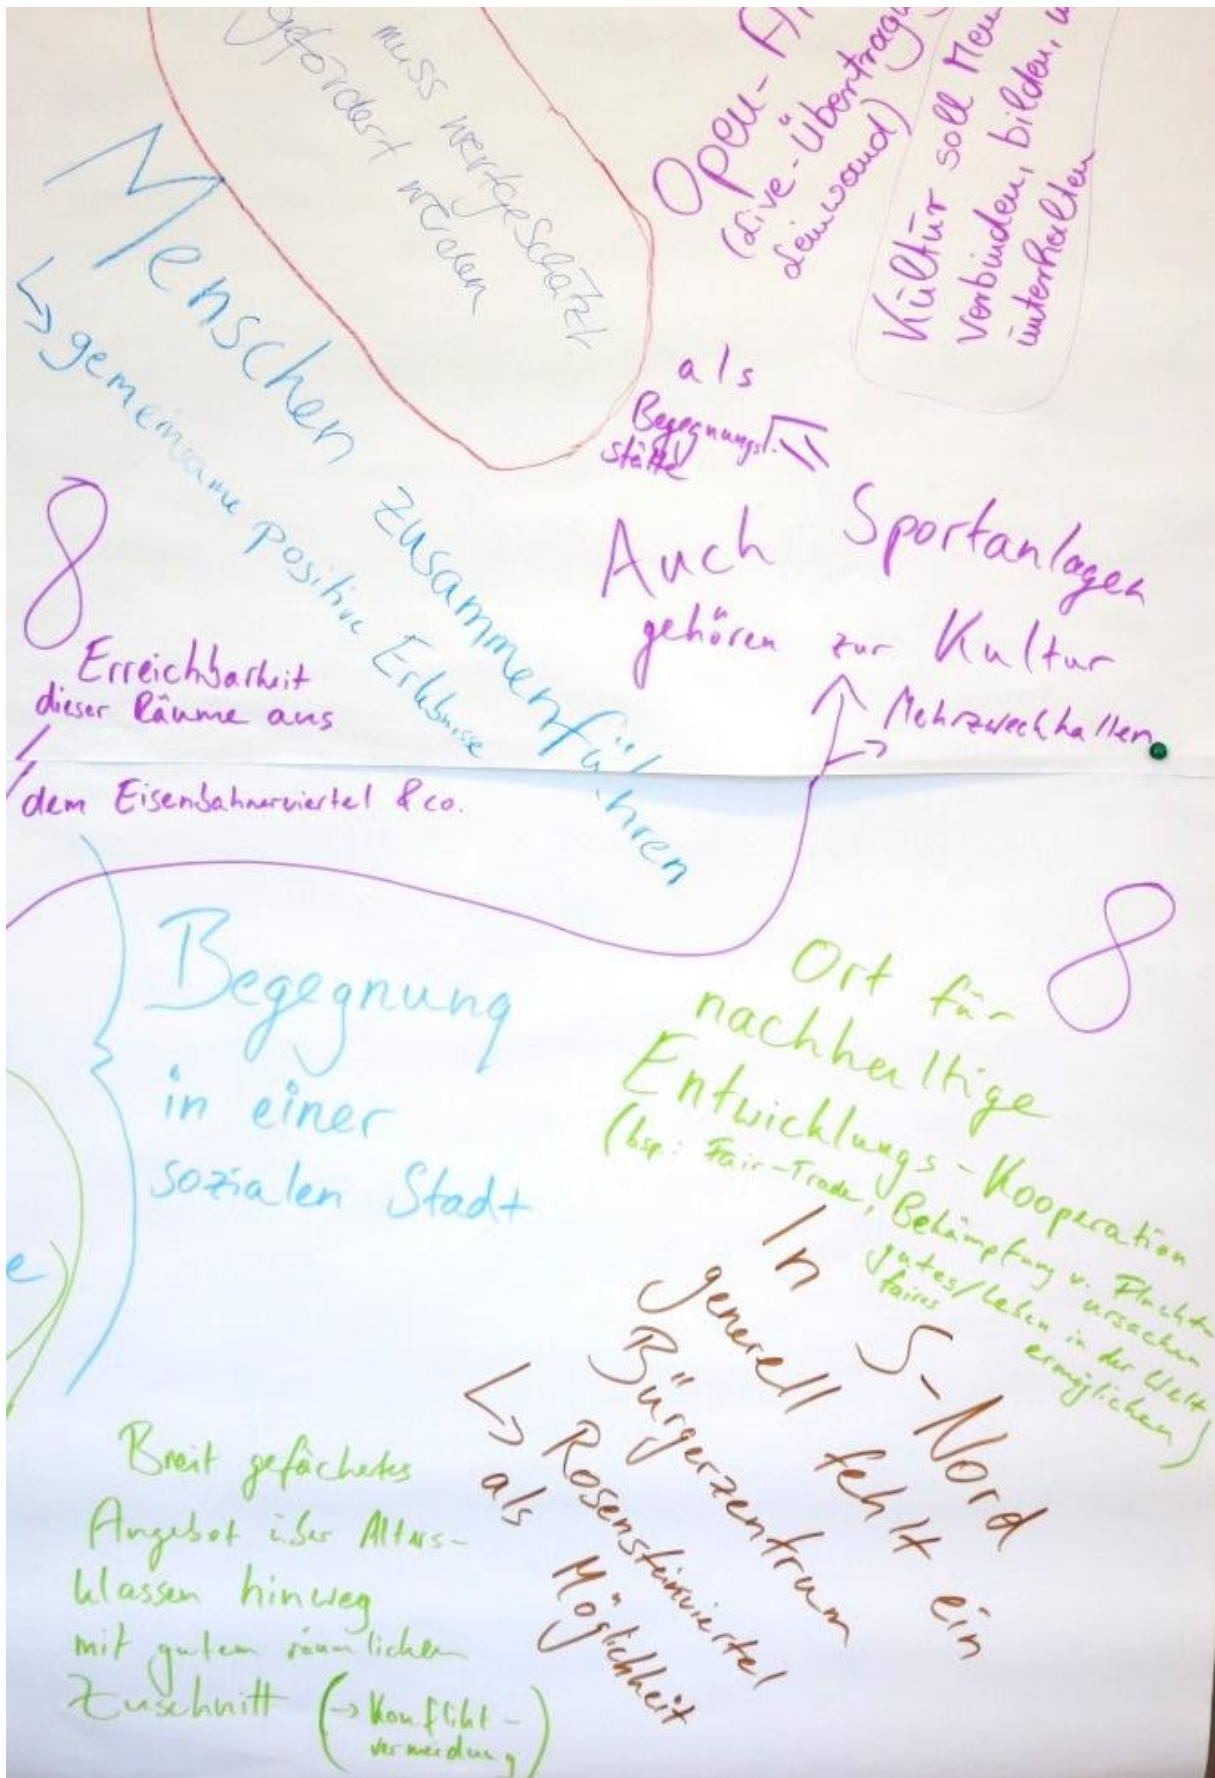 muss wertgeschätzt
gefördert werden
Open-
(Live-Übertragu
Leinwand)
Kultur soll Men
verbinden, bilden, u
unterhalten
Menschen zusammenführen
↳ gemeinsame positive Erlebnisse
als
Begegnungs-
stätte
Auch Sportanlagen
gehören zur Kultur
→ Mehrzweckhallen
8
Erreichbarkeit
dieser Räume aus
dem Eisenbahnerviertel & co.
Begegnung
in einer
sozialen Stadt
e
8
Ort für
nachhaltige
Entwicklungs-Kooperation
(bsp.: Fair-Trade, Bekämpfung v. Flucht-
ursachen
gutes/Leben in der Welt
faires
ermöglichen)
In S-Nord
generell fehlt ein
Bürgerzentrum
↳ Rosensteinviertel
als Möglichkeit
Breit gefächertes
Angebot über Alters-
klassen hinweg
mit gutem räumlichen
Zuschnitt (→ Konflikt-
vermeidung)